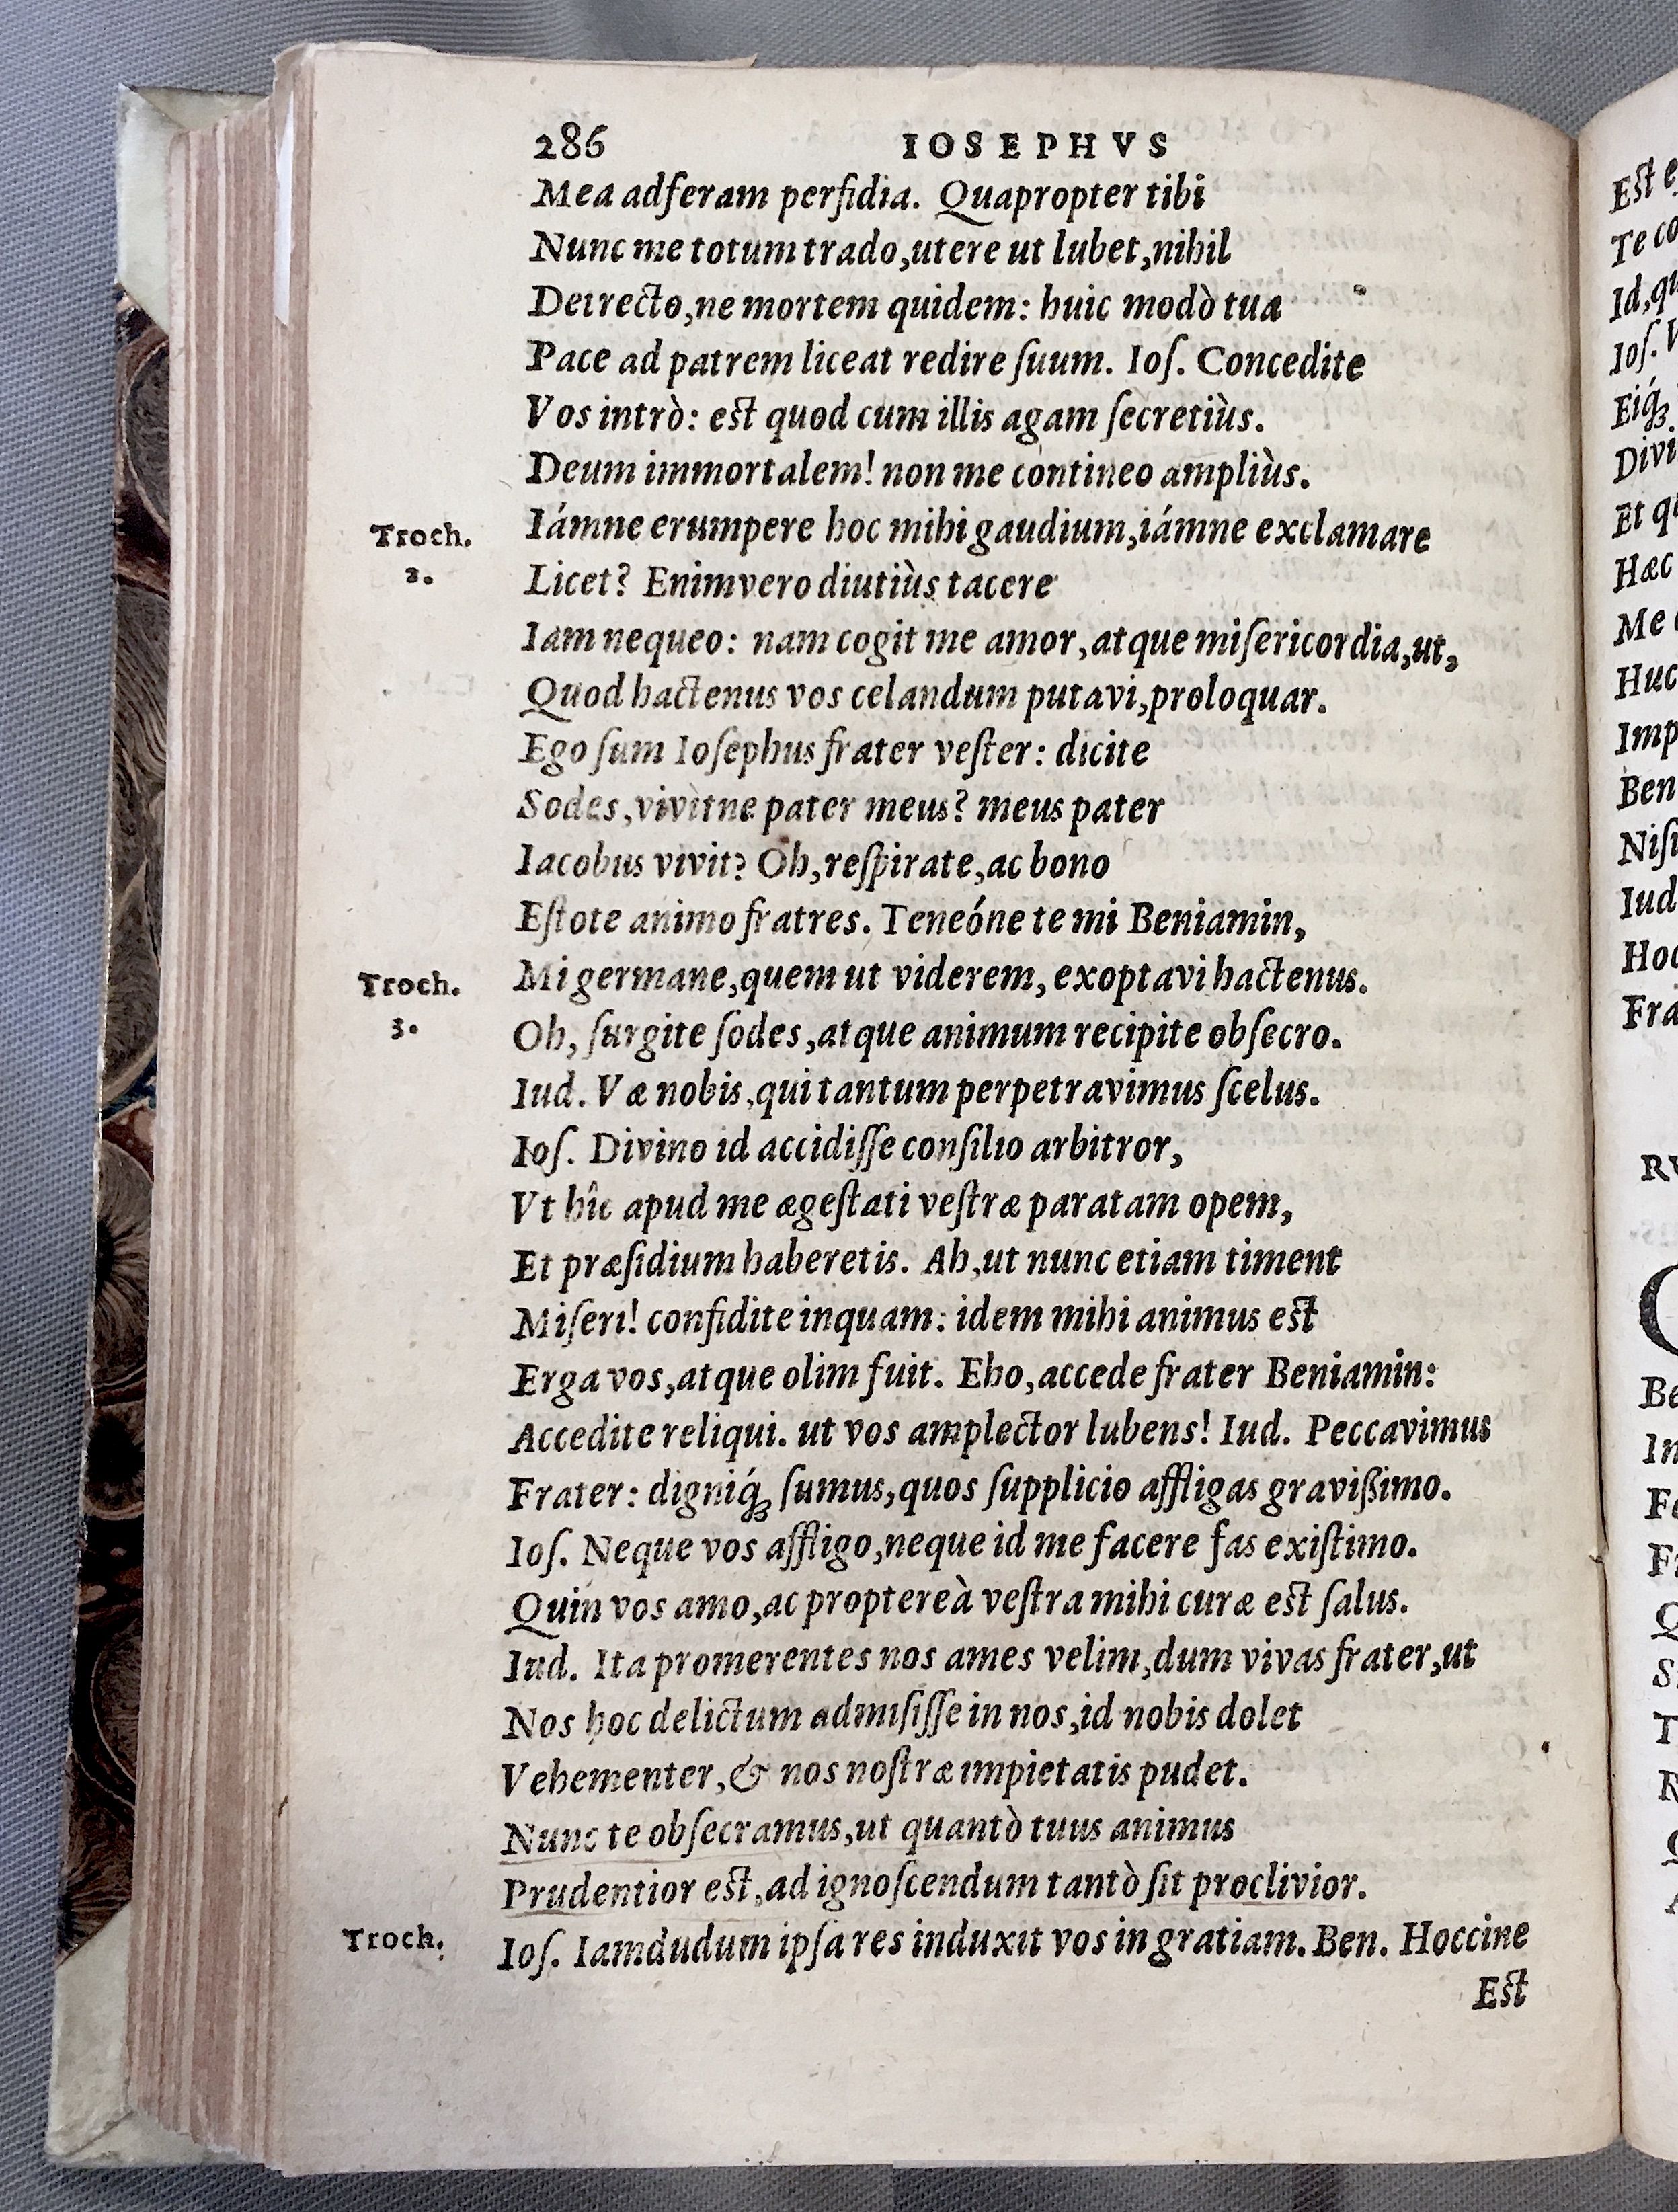 286 IOSEPHVS
Mea adferam perfidia. Quapropter tibi
Nunc me totum trado, utere ut lubet, nihil
Detrecto, ne mortem quidem: huic modò tua
Pace ad patrem liceat redire ſuum. Ioſ. Concedite
Vos intrò: est quod cum illis agam ſecretiùs.
Deum immortalem! non me contineo ampliùs.
Troch. 2. Iámne erumpere hoc mihi gaudium, iámne exclamare
Licet? Enimvero diutiùs tacere
Iam nequeo: nam cogit me amor, atque miſericordia, ut,
Quod hactenus vos celandum putavi, proloquar.
Ego ſum Ioſephus frater veſter: dicite
Sodes, vivitne pater meus? meus pater
Iacobus vivit? Oh, reſpirate, ac bono
Eſtote animo fratres. Teneóne te mi Beniamin,
Troch. 3. Mi germane, quem ut viderem, exoptavi hactenus.
Oh, ſurgite ſodes, atque animum recipite obſecro.
Iud. Væ nobis, qui tantum perpetravimus ſcelus.
Ioſ. Divino id accidiſſe conſilio arbitror,
Vt hîc apud me ægeſtati veſtræ paratam opem,
Et præſidium haberetis. Ah, ut nunc etiam timent
Miſeri! confidite inquam: idem mihi animus est
Erga vos, atque olim fuit. Eho, accede frater Beniamin:
Accedite reliqui. ut vos amplector lubens! Iud. Peccavimus
Frater: digniq́; ſumus, quos ſupplicio affligas gravißimo.
Ioſ. Neque vos affligo, neque id me facere fas exiſtimo.
Quin vos amo, ac proptereà veſtra mihi curæ est ſalus.
Iud. Ita promerentes nos ames velim, dum vivas frater, ut
Nos hoc delictum admiſiſſe in nos, id nobis dolet
Vehementer, & nos noſtræ impietatis pudet.
Nunc te obſecramus, ut quantò tuus animus
Prudentior est, ad ignoſcendum tantò ſit proclivior.
Troch. Ioſ. Iamdudum ipſa res induxit vos in gratiam. Ben. Hoccine
Est